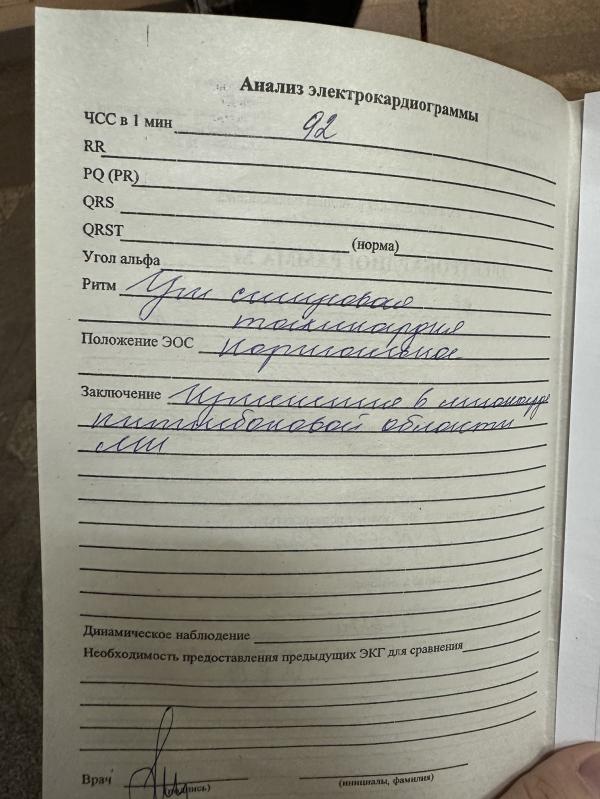 Анализ электрокардиограммы
ЧСС в 1 мин 92
RR
PQ (PR)
QRS
QRST (норма)
Угол альфа
Ритм синусовая
тахикардия
Положение ЭОС нормальное
Заключение Изменения в миокарде
нижнебоковой области
Динамическое наблюдение
Необходимость предоставления предыдущих ЭКГ для сравнения
Врач
(подпись) (инициалы, фамилия)